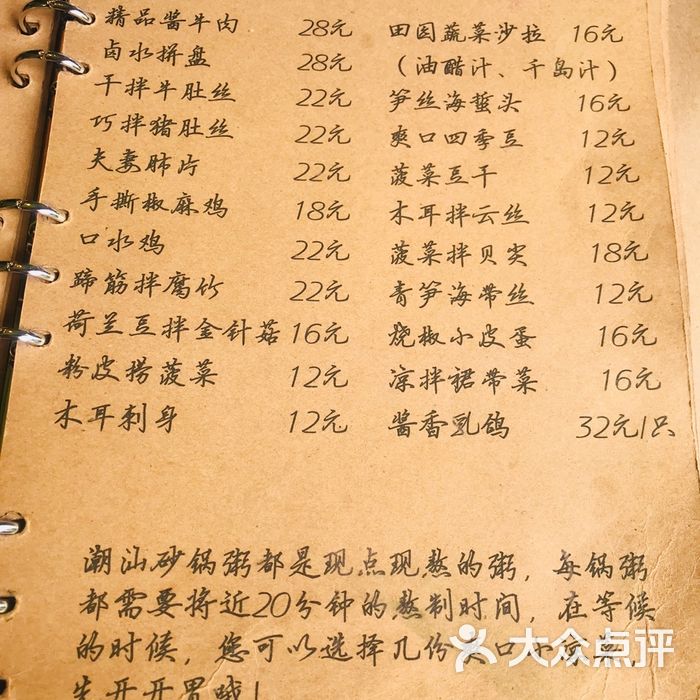 精品酱牛肉 28元
卤水拼盘 28元
干拌牛肚丝 22元
巧拌猪肚丝 22元
夫妻肺片 22元
手撕椒麻鸡 18元
口水鸡 22元
蹄筋拌腐竹 22元
荷兰豆拌金针菇 16元
粉皮捞菠菜 12元
木耳刺身 12元
田园蔬菜沙拉 16元
（油醋汁、千岛汁）
笋丝海蜇头 16元
爽口四季豆 12元
菠菜豆干 12元
木耳拌云丝 12元
菠菜拌贝尖 18元
青笋海带丝 12元
烧椒小皮蛋 16元
凉拌裙带菜 16元
酱香乳鸽 32元/只
潮汕砂锅粥都是现点现熬的粥，每锅粥
都需要将近20分钟的熬制时间，在等候
的时候，您可以选择几份爽口小凉菜，
先开开胃哦！
大众点评